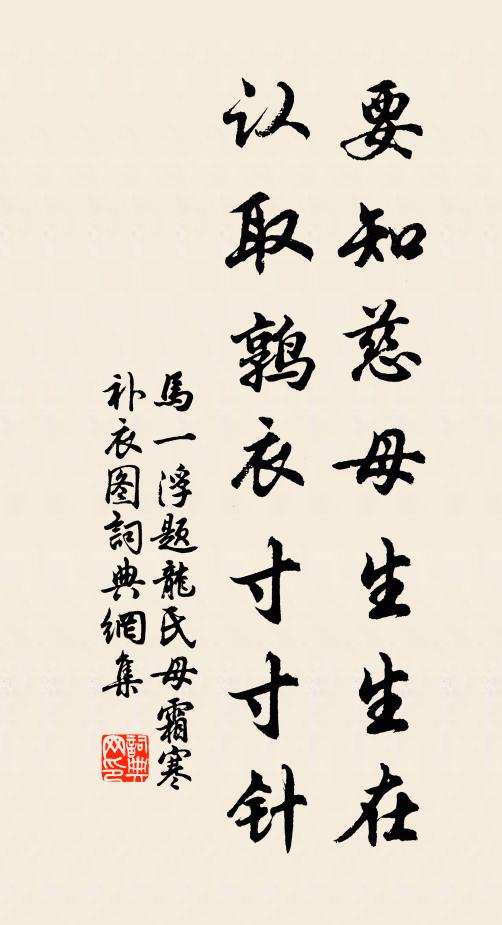 要知慈母生生在
认取鹑衣寸寸针
馬一浮題龍氏母霜寒
补衣图詞典網集
詞典网印